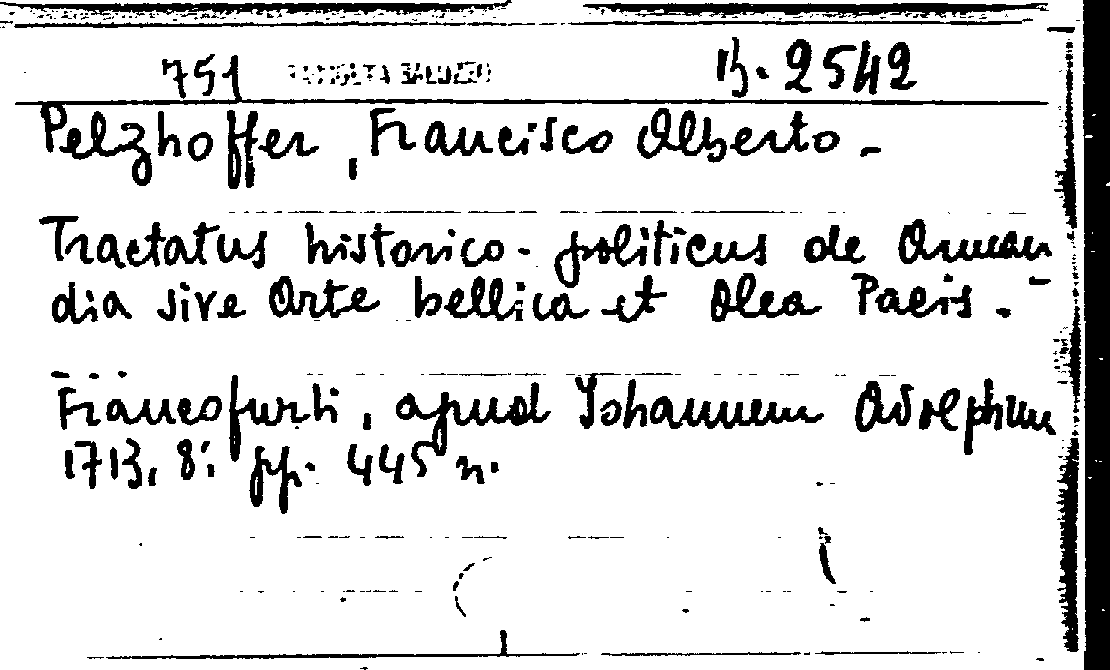 751 RACCOLTA SALUZZO B. 2542
Pelzhoffer, Francisco Alberto -
Tractatus historico-politicus de Arman
dia sive Arte bellica et Olea Pacis. -
Francofurti, apud Johannem Adolphum
1713, 8°: pp. 445 n.